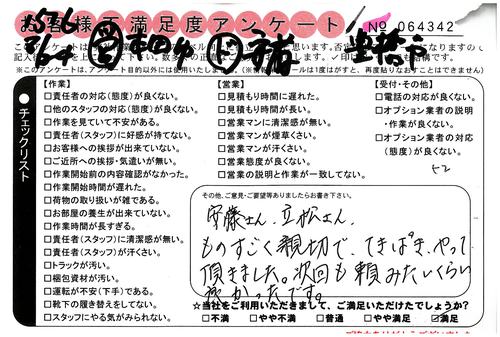 お客様不満足度アンケート
No 064342
※このアンケートは、アンケート目的以外には使用いたしません。
●チェックリスト
【作業】
□責任者の対応(態度)が良くない。
□他のスタッフの対応(態度)が良くない。
□作業を見ていて不安がある。
□責任者(スタッフ)に好感が持てない。
□お客様への挨拶が出来ていない。
□ご近所への挨拶・気遣いが無い。
□作業開始前の内容確認がなかった。
□作業開始時間が遅れた。
□荷物の取り扱いが雑である。
□お部屋の養生が出来ていない。
□作業時間が長すぎる。
□責任者(スタッフ)に清潔感が無い。
□責任者(スタッフ)が汗くさい。
□トラックが汚い。
□梱包資材が汚い。
□運転が不安(下手)である。
□靴下の履き替えをしてない。
□スタッフにやる気がみられない。
【営業】
□見積もり時間に遅れた。
□見積もり時間が長い。
□営業マンに清潔感が無い。
□営業マンが煙草くさい。
□営業マンが汗くさい。
□営業態度が良くない。
□営業の説明と作業が一致してない。
【受付・その他】
□電話の対応が良くない。
□オプション業者の説明
・作業が良くない。
□オプション業者の対応
(態度)が良くない。
52
その他、ご意見・ご要望等ありましたらお書き下さい。
安藤さん、立松さん、
ものすごく親切で、てきぱき、やって
頂きました。次回も頼みたいくらい
良かったです。
☆当社をご利用いただきまして、ご満足いただけたでしょうか?
□不満 □やや不満 □普通 □やや満足 ☑満足